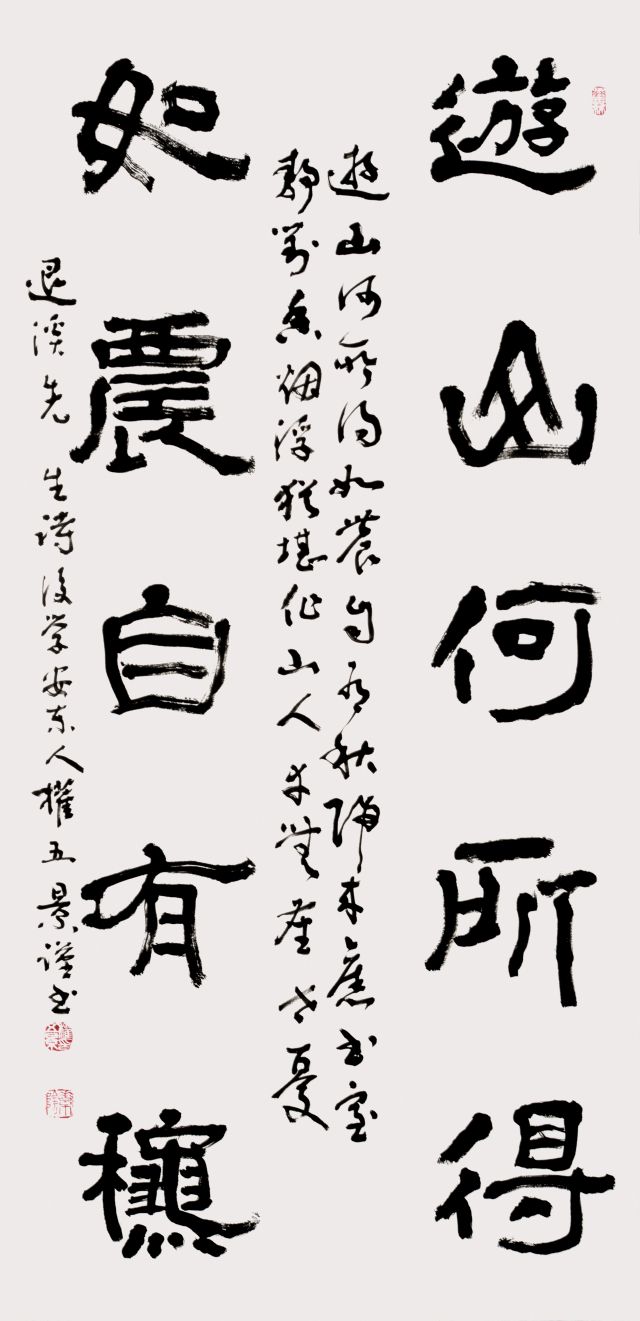 遊山何所得
如農自有龝
遊山何所得如農自有秋歸來舊書室
靜對香烟浮猶堪作山人幸無塵世憂
退溪先生詩後學安東人權五景謹書